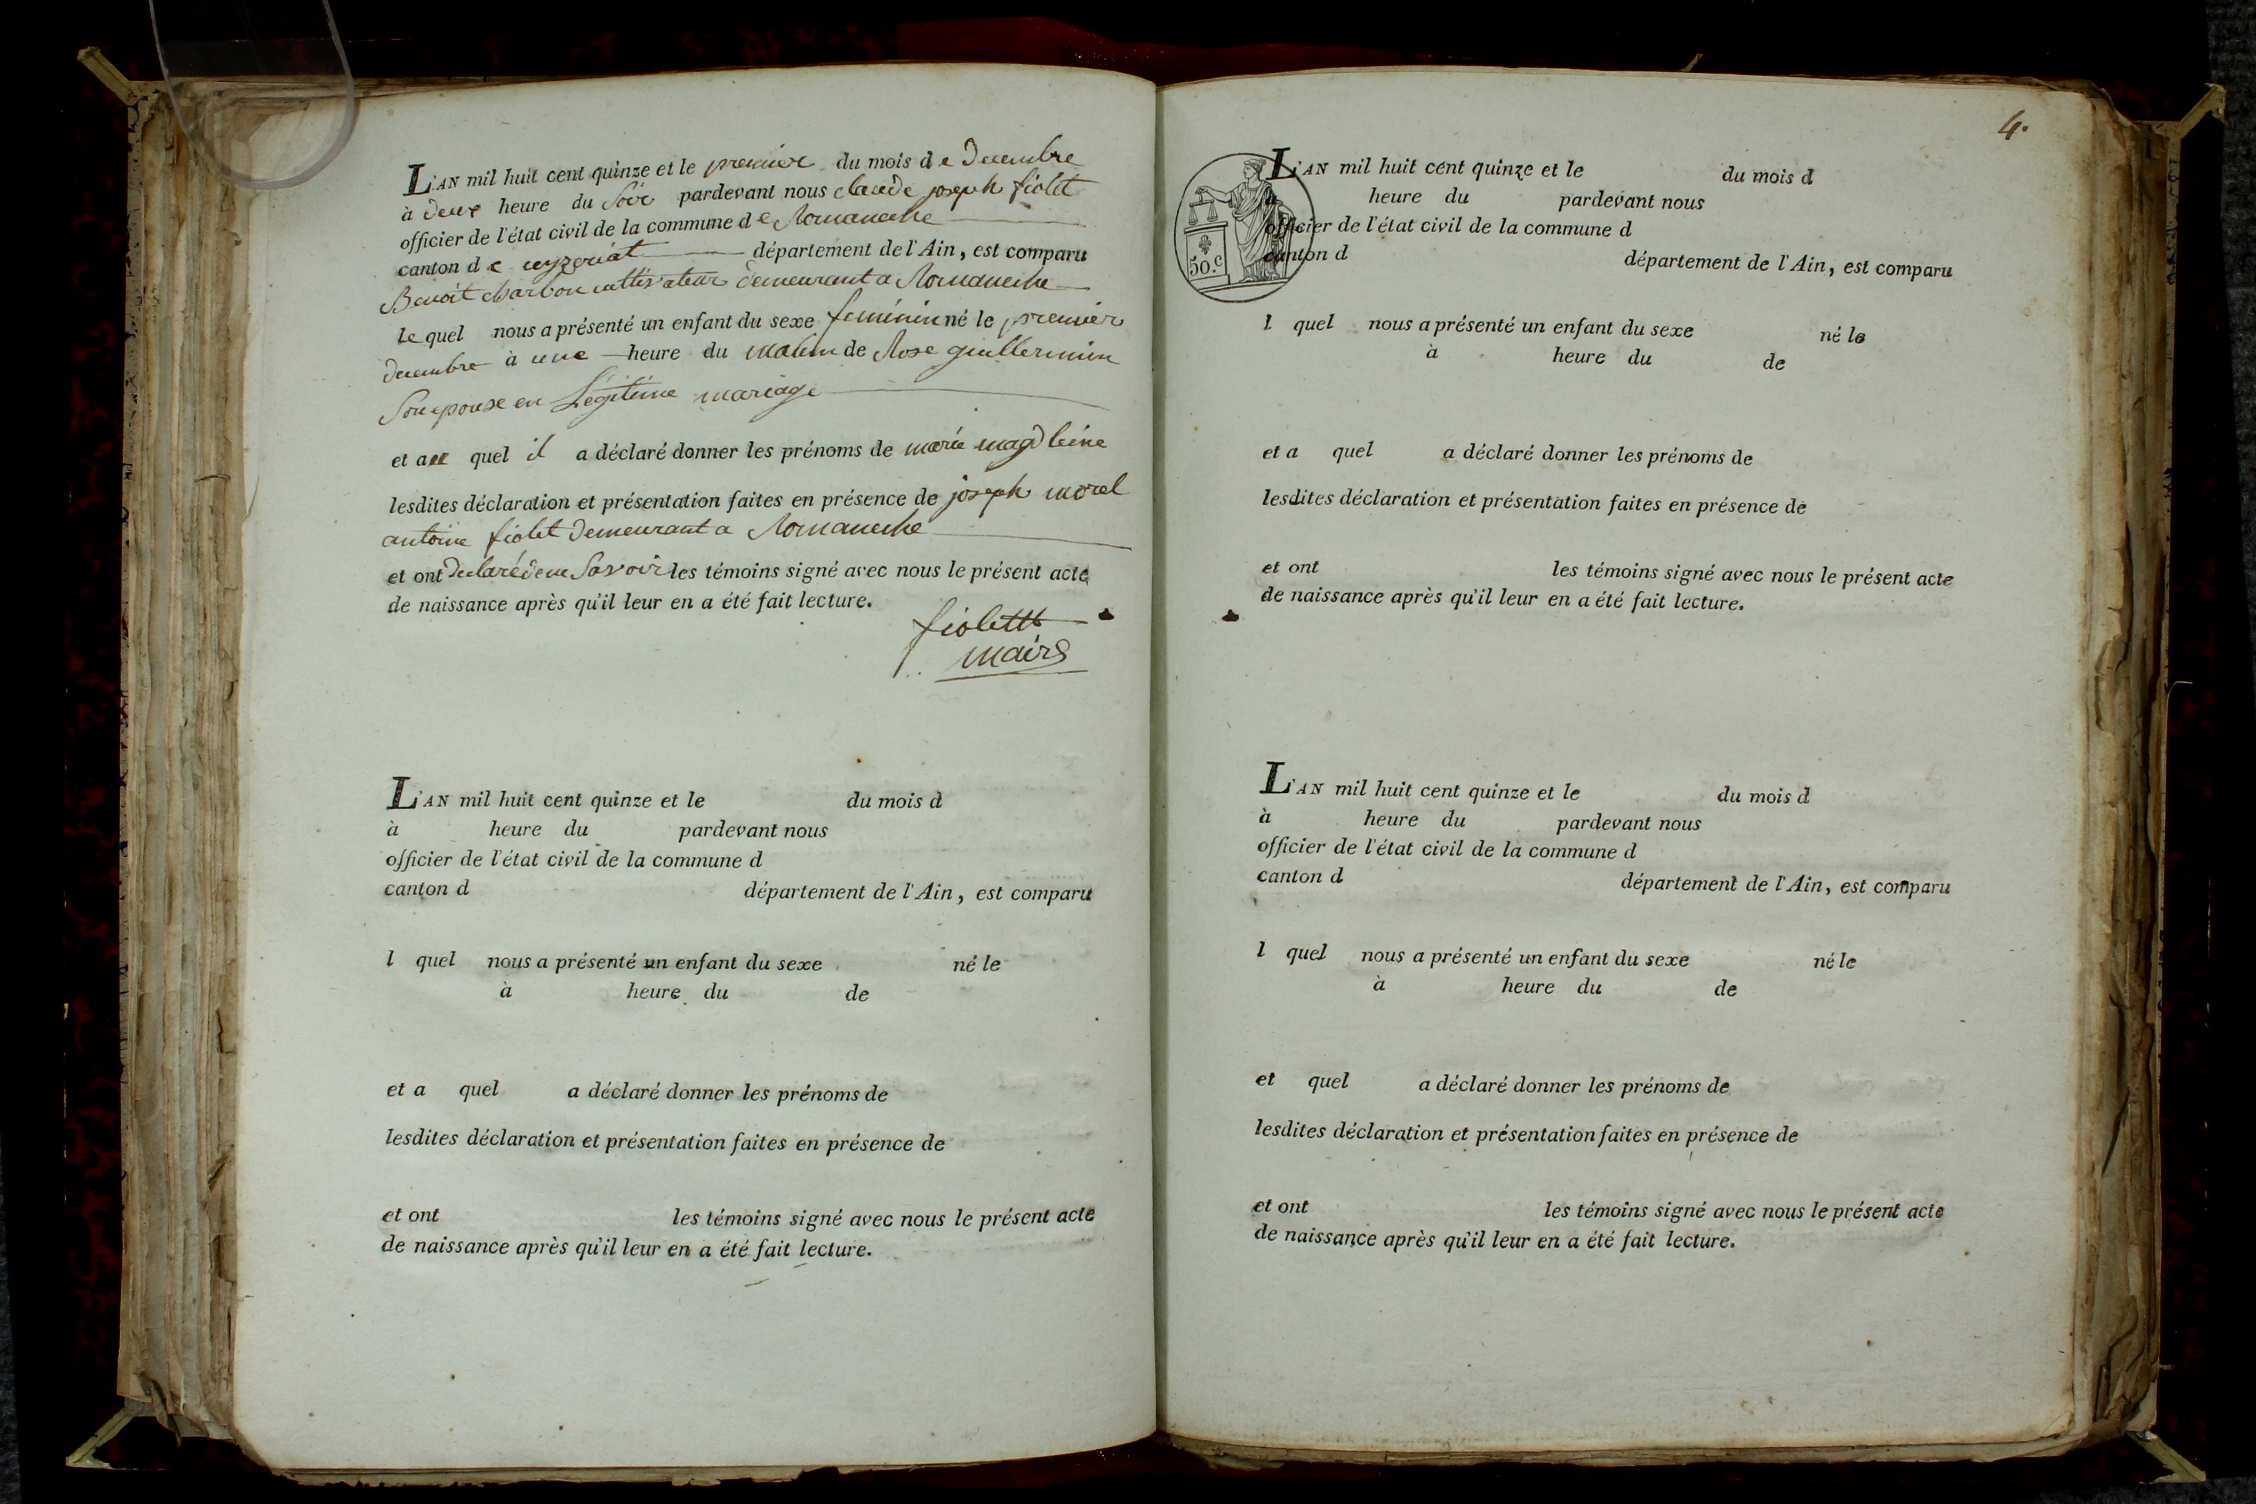 L'AN mil huit cent quinze et le premier du mois de decembre
à deux heure du Soir pardevant nous claude joseph fiolet
officier de l'état civil de la commune de Romaneche
canton de ceyzeriat département de l'Ain, est comparu
Benoit charbon cultivateur demeurant a Romaneche
le quel nous a présenté un enfant du sexe feminin né le premier
decembre à une heure du matin de Rose guillermin
Son epouse en Légitime mariage
et au quel il a déclaré donner les prénoms de marie magdleine
lesdites déclaration et présentation faites en présence de joseph morel
antoine fiolet demeurant a Romaneche
et ont declaré ne Savoir les témoins signé avec nous le présent acte
de naissance après qu'il leur en a été fait lecture.
fiolet
maire
L'AN mil huit cent quinze et le du mois d
à heure du pardevant nous
officier de l'état civil de la commune d
canton d département de l'Ain, est comparu
l quel nous a présenté un enfant du sexe né le
à heure du de
et a quel a déclaré donner les prénoms de
lesdites déclaration et présentation faites en présence de
et ont les témoins signé avec nous le présent acte
de naissance après qu'il leur en a été fait lecture.
4.
L'AN mil huit cent quinze et le du mois d
à heure du pardevant nous
officier de l'état civil de la commune d
canton d département de l'Ain, est comparu
50.c
l quel nous a présenté un enfant du sexe né le
à heure du de
et a quel a déclaré donner les prénoms de
lesdites déclaration et présentation faites en présence de
et ont les témoins signé avec nous le présent acte
de naissance après qu'il leur en a été fait lecture.
L'AN mil huit cent quinze et le du mois d
à heure du pardevant nous
officier de l'état civil de la commune d
canton d département de l'Ain, est comparu
l quel nous a présenté un enfant du sexe né le
à heure du de
et quel a déclaré donner les prénoms de
lesdites déclaration et présentation faites en présence de
et ont les témoins signé avec nous le présent acte
de naissance après qu'il leur en a été fait lecture.